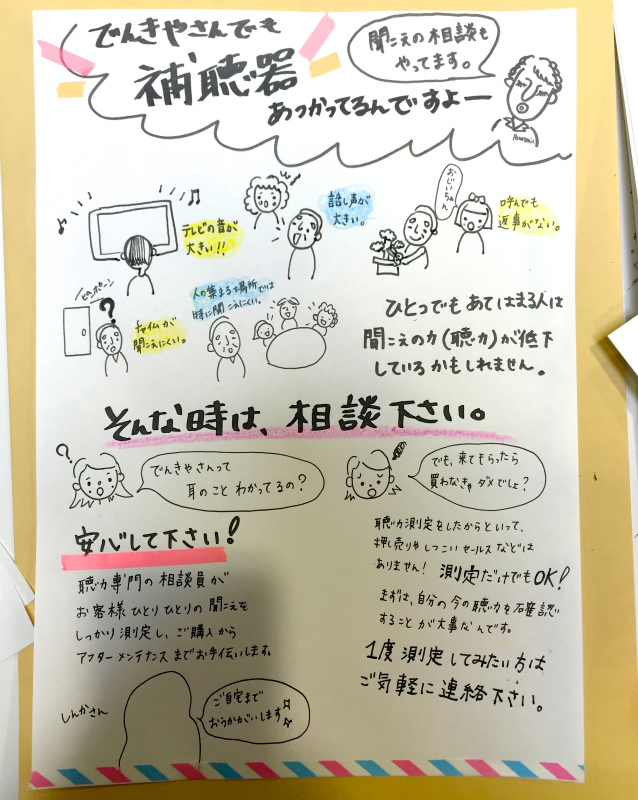 でんきやさんでも
補聴器
あつかってるんですよー
聞こえの相談も
やってます。
Panasonic
テレビの音が
大きい!!
話し声が
大きい。
おじいちゃん
呼んでも
返事がない。
ピンポーン
?
チャイムが
聞こえにくい。
人の集まる場所では
特に聞こえにくい。
ひとつでもあてはまる人は
聞こえの力(聴力)が低下
しているかもしれません。
そんな時は、相談下さい。
?
でんきやさんって
耳のこと わかってるの?
でも、来てもらったら
買わなきゃダメでしょ?
安心して下さい!
聴力専門の相談員が
お客様ひとりひとりの聞こえを
しっかり測定し、ご購入から
アフターメンテナンスまでお手伝いします。
しんかさん
ご自宅まで
おうかがいします
聴力測定をしたからといって、
押し売りやしつこいセールスなどは
ありません! 測定だけでもOK!
まずは、自分の今の聴力を確認
することが大事なんです。
1度測定してみたい方は
ご気軽に連絡下さい。